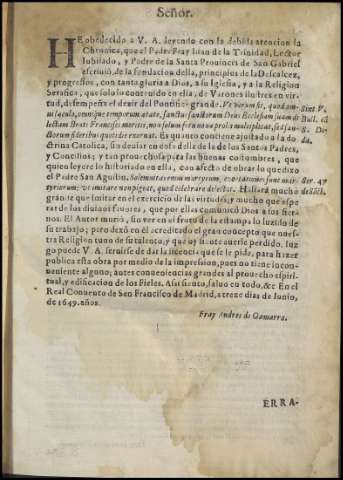 Señor.
HE obedecido a V. A. leyendo con la debida atencion la
Chronica, que el Padre Fray Iuan de la Trinidad, Lector
Iubilado, y Padre de la Santa Prouincia de San Gabriel
escriuiò, de la fundacion della, principios de la Descalcez,
y progressos, con tanta gloria a Dios, a su Iglesia, y a la Religion
Serafica, que solo su contenido en ella, de Varones ilustres en vir-
tud, desempeña el dezir del Pontifice grande.
Sint. V.
Bull.
S.
doctrina Catolica, sin desuiar en cosa della de la de los Santos Padres,
y Concilios; y tan prouechosa para las buenas costumbres, que
quien leyere lo historiado en ella, con afecto de obrar lo que dixo
el Padre San Agustin. Solemnitates martyrum, exortationes sunt mar-
tyriorum: vt imitare non pigeat, quod celebrare delectat. Hallarà mucho
Ser. 47
de Sact.
grante que imitar en el exercicio de las virtudes, y mucho que espe-
rar de los diuinos fauores, que por ellas comunicò Dios a sus sier-
nos. El Autor muriò, sin ver en el fruto de la estampa lo luzido de
su trabajo; pero dexò en èl acreditado el gran concepto que nues-
tra Religion tuuo de su talento, y que oy siente auerle perdido. luz
go puede V. A. seruirse de dar la licencia que se le pide, para hazer
publica esta obra por medio de la impression, pues no tiene incon-
ueniente alguno, antes conueniencias grandes al prouecho espiri-
tual, y edificacion de los Fieles. Assi siento, saluo en todo, &c. En el
Real Conuento de San Francisco de Madrid, a treze dias de Iunio,
de 1649. años.
Fray Andres de Gamarra.
ERRA-